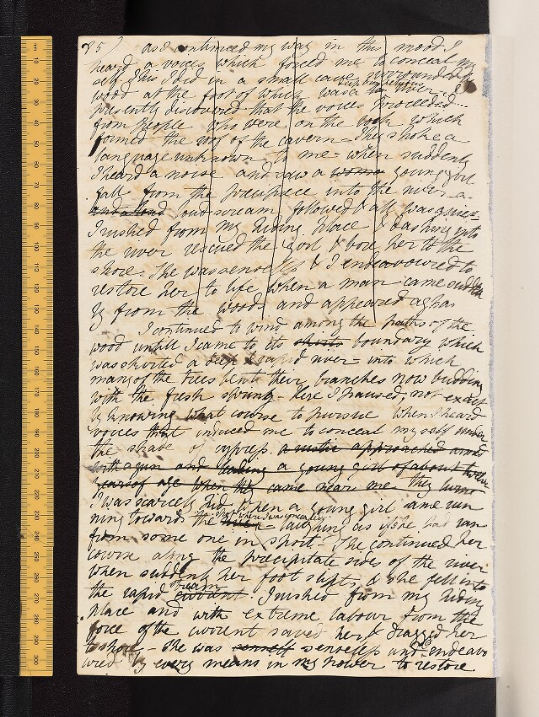 85) As I continued my way in this mood I
heard a voices which forced me to conceal my
self. This I did in a small cave surrounded by
wood at the foot of which was a river - I
presently discovered that the voices proceeded
from people who were on the rock which
formed the roof of the cavern - They spoke a
language unknown to me when suddenly
I heard a noise and saw a young girl
fall from the precipice into the river - a
and a loud loud scream followed & all was quiet
I rushed from my hiding place & dashing into
the river rescued the girl & bore her to the
shore. She was senseless & I endeavoured to
restore her to life when a man came sudden
ly from the wood and appeared aghas
I continued to wind among the paths of the
wood untill I came to its boundary which
was skirted a deep & rapid river - into which
many of the trees bent their branches now budding
with the fresh spring - here I paused, not exact
ly knowing what course to pursue when I heard
voices that induced me to conceal myself under
the shade of a cypress a rustic approached armed
with a gun and leading a young girl of about twelve
years of age when they came near me they turned
I was scarcely hid when a young girl came run
ning towards the laughing as if she has ran
from some one in sport. She continued her
course along the precipitate side of the river
when suddenly her foot slipt, & she fell into
the rapid current stream I rushed from my hiding
place and with extreme labour from the
force of the current saved her & dragged her
to shore - She was senseless and I endeavo
ured by every means in my power to restore